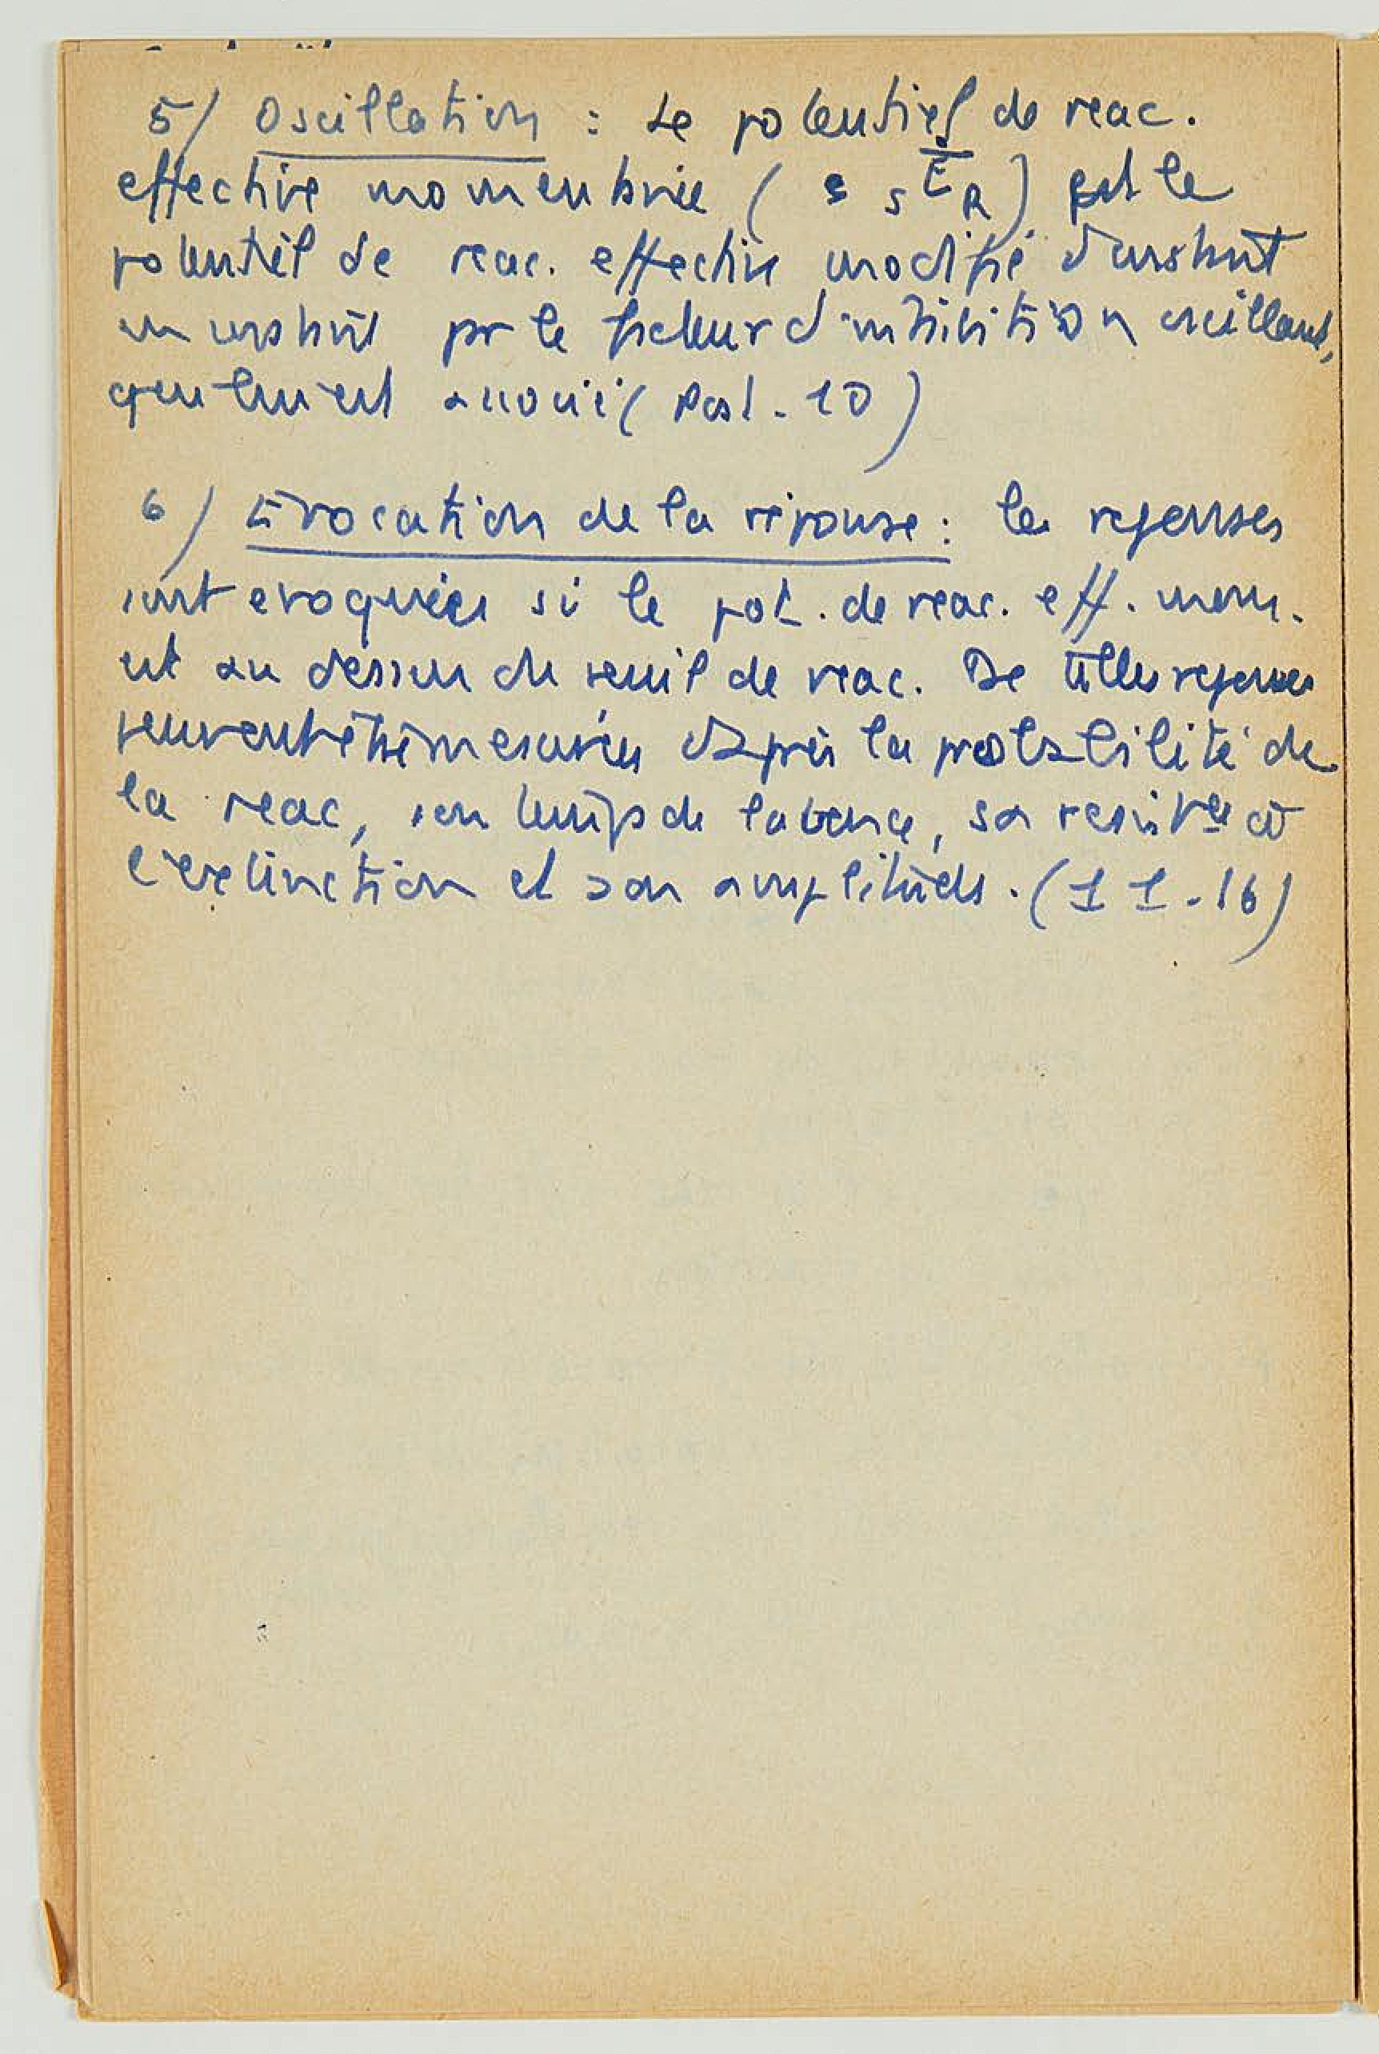 5/ Oscillation : Le potentiel de reac.
effective momentanée ( s s Ė R ) est le
potentiel de reac. effective modifié d'instant
en instant par le facteur d'inhibition oscillant,
(Post. 10)
6/ Evocation de la réponse : les reponses
sont evoquées si le pot. de reac. eff. mom.
est au dessus du seuil de reac. De telles reponses
peuvent être mesurées d'après la probabilité de
la reac, son temps de latence, sa resist ce à
l'extinction et son amplitude. (11-16)